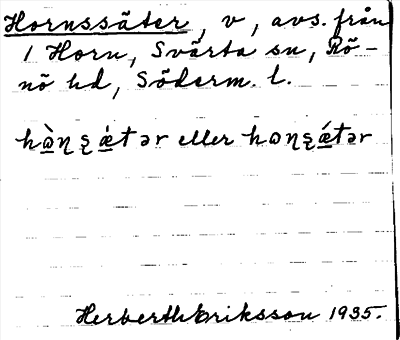 Hornssäter, v, avs. från
1 Horn, Svärta sn, Rö-
nö hd, Söderm. l.
hɷ̀ɳʂǽtər eller hɷɳʂǽtər
Herbert Eriksson 1935.